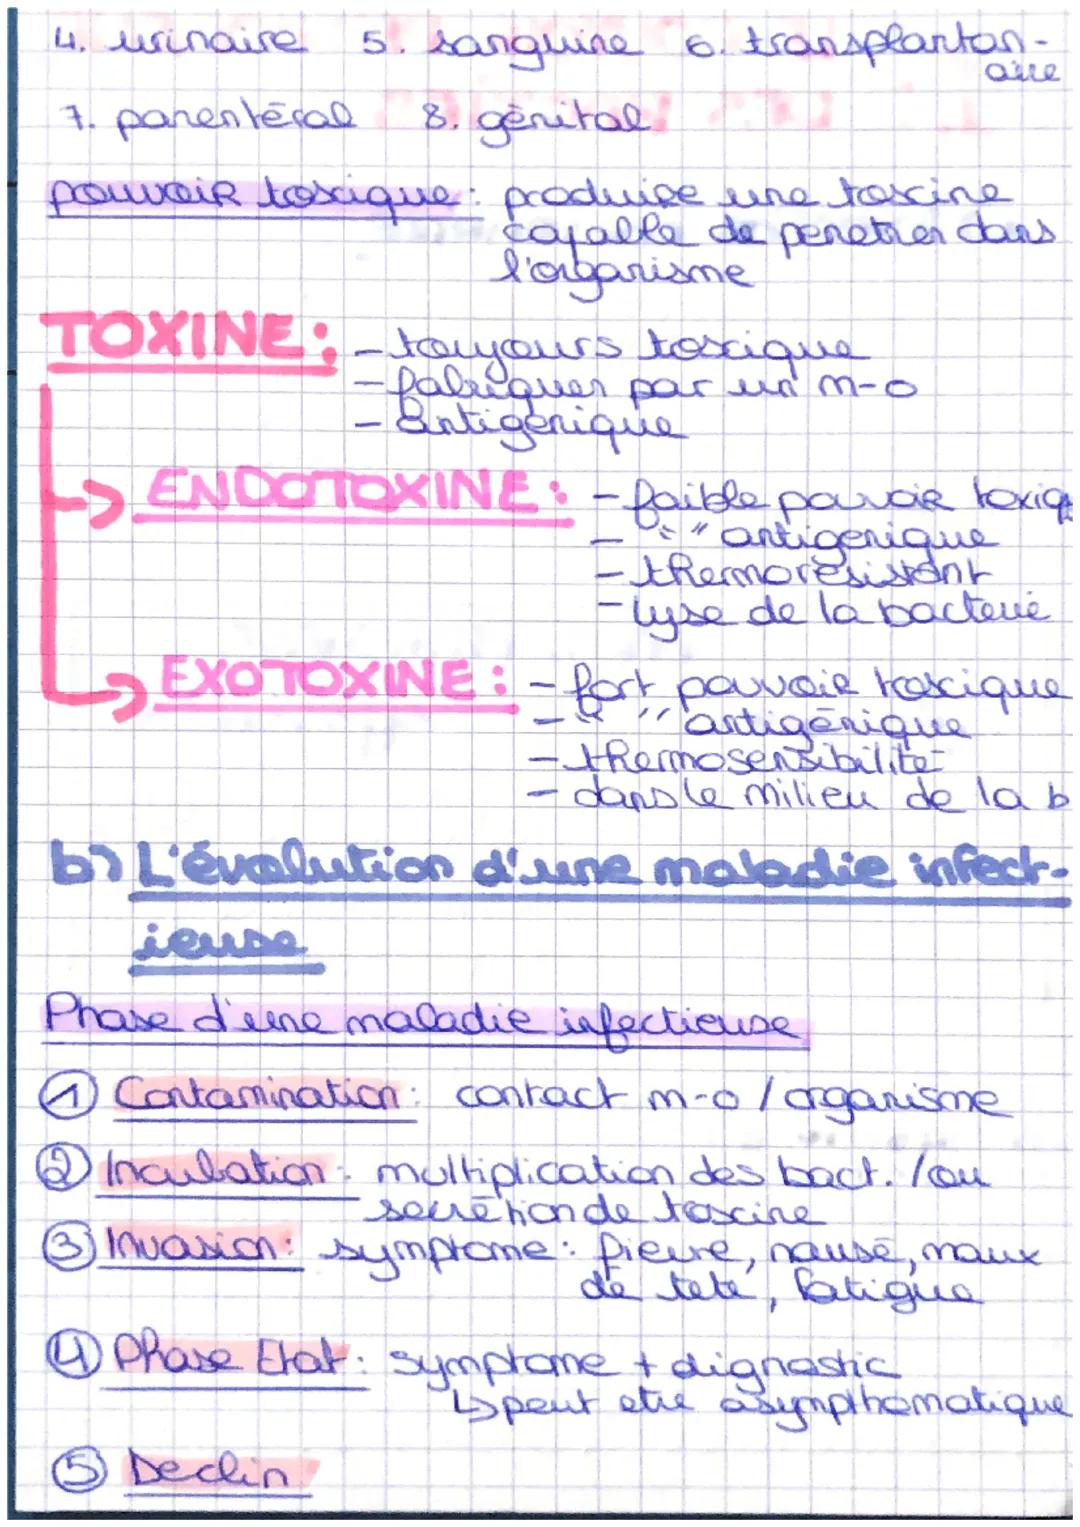 4. urinaire 5. sanguine 6. transplantan-
aire
7. parentéral 8. génital
pouvoir toxique : produise une toxine
capable de penetrer dans
l'organisme
TOXINE : - toujours toxique
- fabriquer par un m-o
- antigénique
ENDOTOXINE : - faible pouvoir toxiq
- " " antigenique
- thermorésistant
- lyse de la bacterie
EXOTOXINE : - fort pouvoir toxique
- " " antigénique
- thermosensibilité
- dans le milieu de la b
b) L'évolution d'une maladie infect-
ieuse
Phase d'une maladie infectieuse
1 Contamination : contact m-o / organisme
2 Incubation : multiplication des bact. /ou
secrétion de toxine
3 Invasion : symptome : fievre, nausé, maux
de tete, fatigue
4 Phase Etat : symptome + dignostic
↳ peut etre asympthomatique
5 Declin